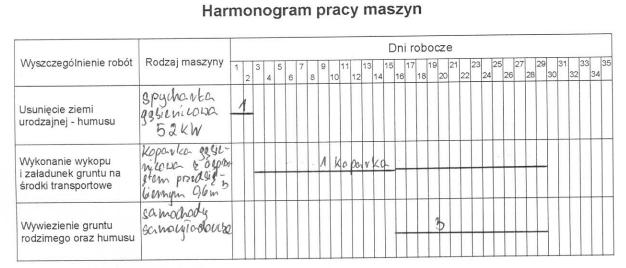 Harmonogram pracy maszyn
Wyszczególnienie robót
Rodzaj maszyny
Dni robocze
1 3 5 7 9 11 13 15 17 19 21 23 25 27 29 31 33 35
2 4 6 8 10 12 14 16 18 20 22 24 26 28 30 32 34
Usunięcie ziemi
urodzajnej - humusu
spycharka
gąsienicowa
52 kW
1
Wykonanie wykopu
i załadunek gruntu na
środki transportowe
koparka gąsie-
nicowa z osprzę-
tem przedsię-
biernym 0,6m³
1 koparka
Wywiezienie gruntu
rodzimego oraz humusu
samochody
samowyładowcze
3